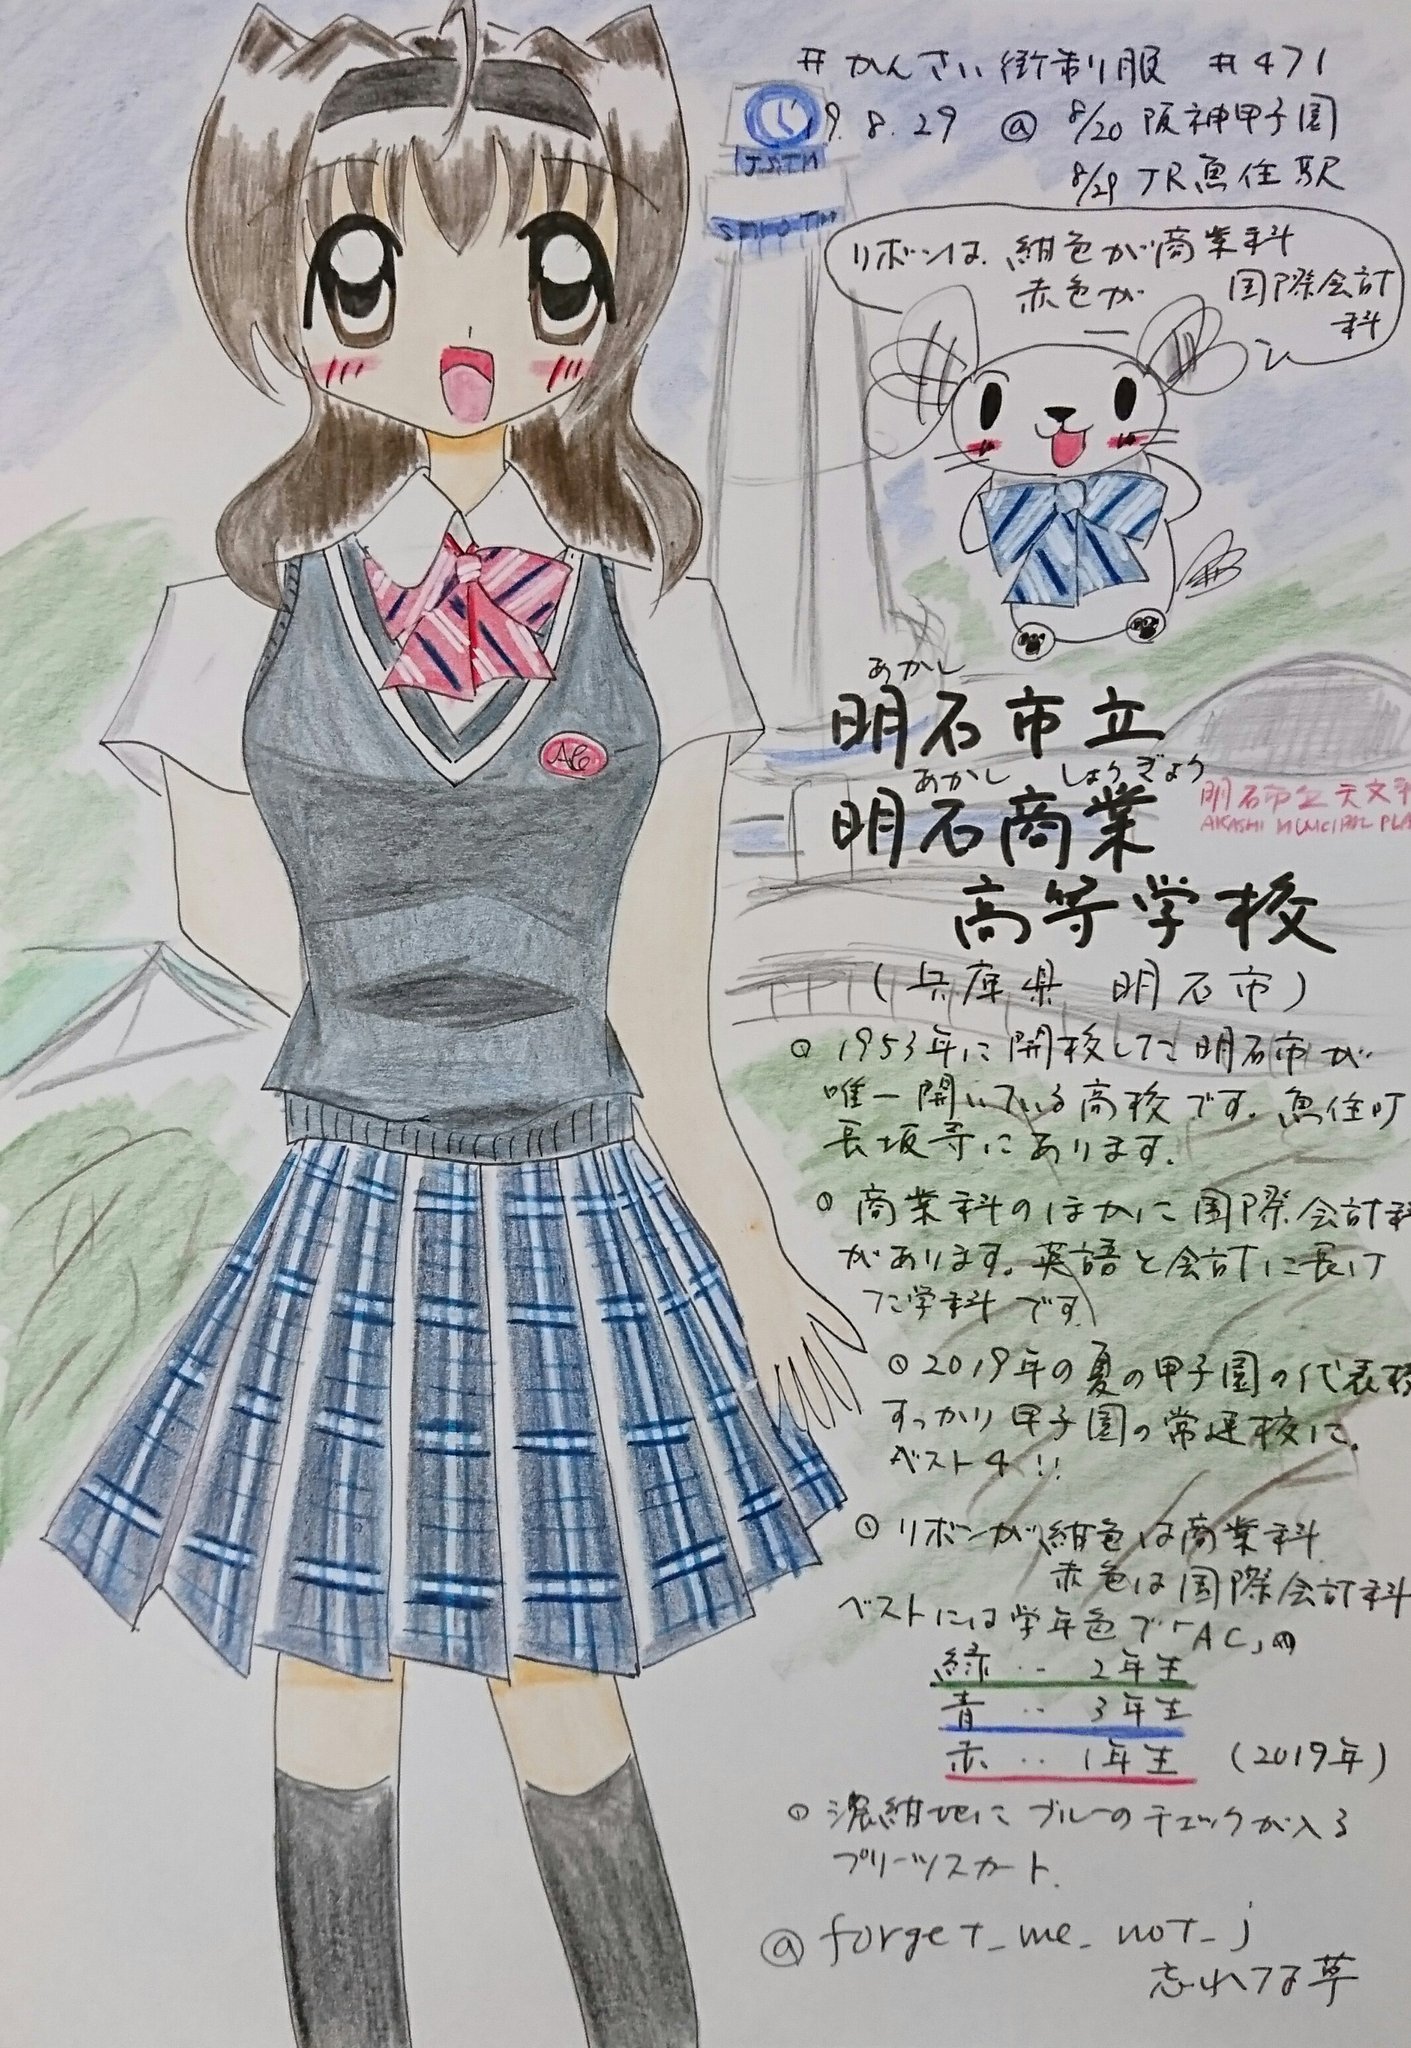 #かんさい街制服 #471
19.8.29 @ 8/20 阪神甲子園
8/29 JR魚住駅
J.S.T.M
リボンは、紺色が商業科
赤色が 国際会計
科
AC
あかし
明石市立
あかし しょうぎょう
明石商業
高等学校
明石市立天文科
AKASHI MUNICIPAL PLA
(兵庫県 明石市)
1953年に開校した明石市が
唯一開いている高校です。魚住町
長坂寺にあります。
商業科のほかに国際会計科
があります。英語と会計に長け
た学科です
2019年の夏の甲子園の代表校
すっかり甲子園の常連校に。
ベスト4!!
リボンが紺色は商業科
赤色は国際会計科
ベストには学年色で「AC」の
緑‥2年生
青‥3年生
赤‥1年生 (2019年)
濃紺地にブルーのチェックが入る
プリーツスカート.
@forget_me_not_j
忘れな草